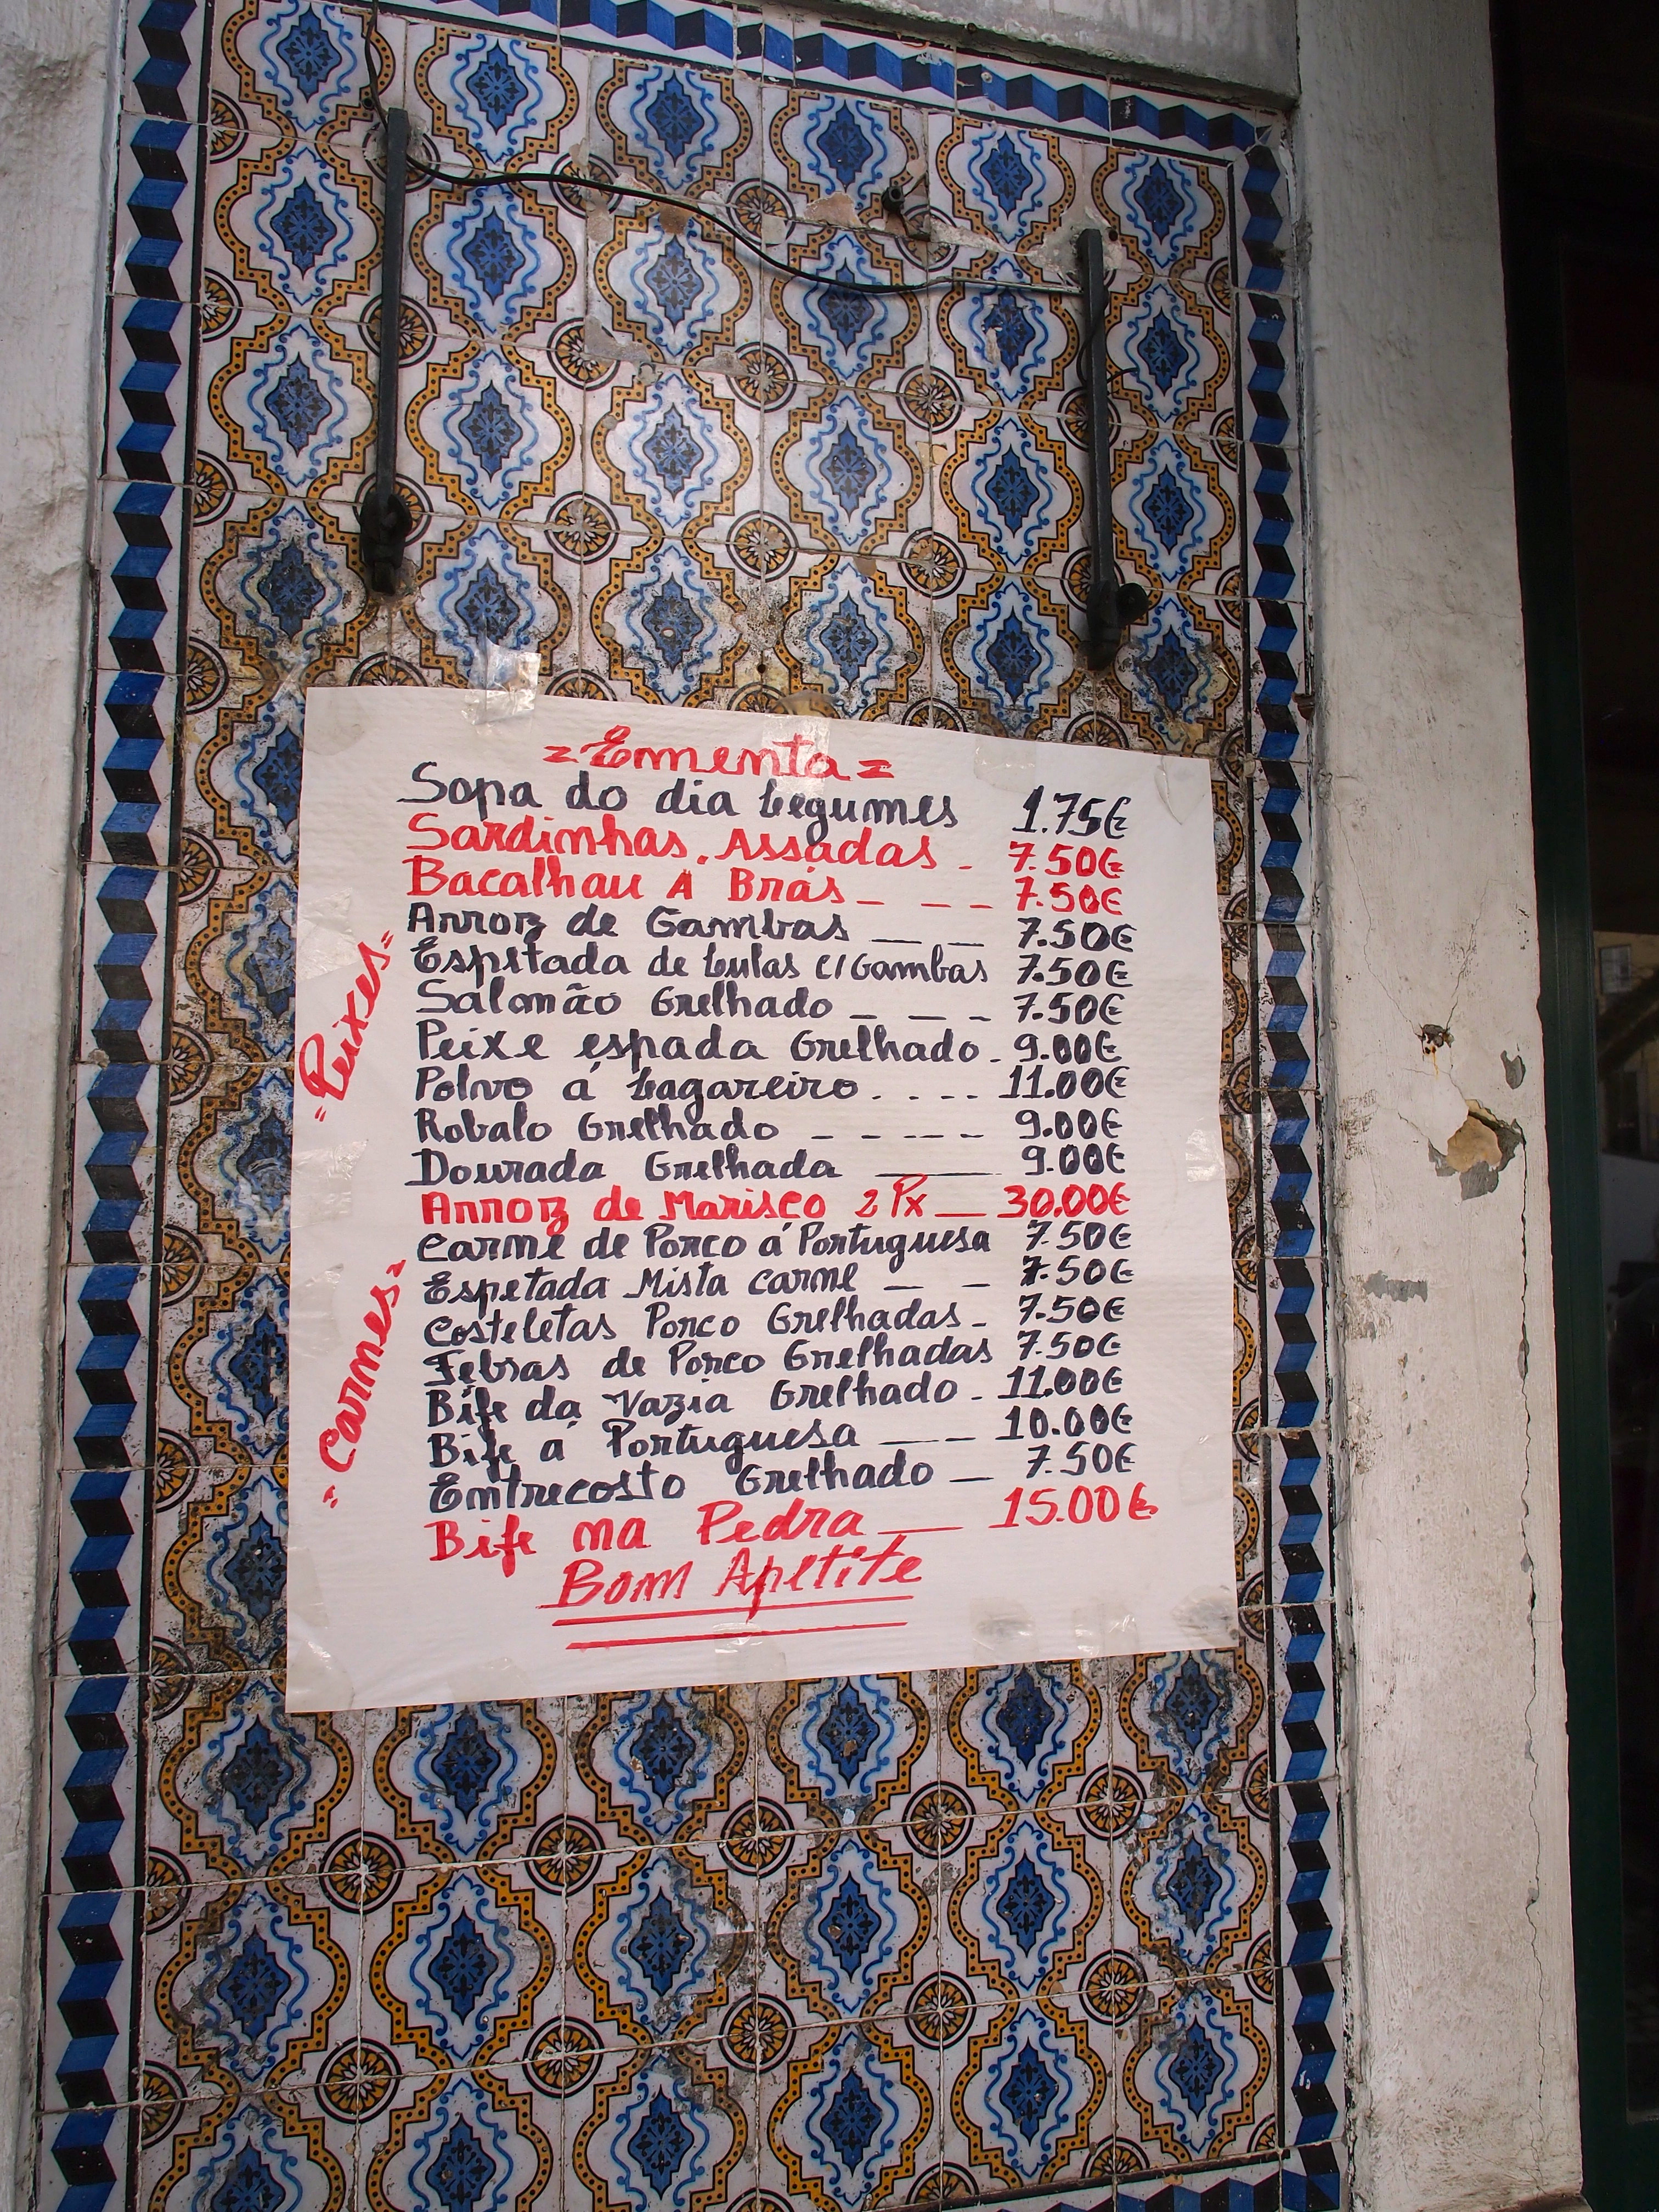 = Ementa =
Sopa do dia Legumes 1.75€
Sardinhas. Assadas - 7.50€
Bacalhau A Brás - - - - 7.50€
Arroz de Gambas — — 7.50€
Espetada de Lulas C/Gambas 7.50€
Salmão Grelhado - - - - 7.50€
Peixe espada Grelhado - 9.00€
Polvo á Lagareiro . . - - 11.00€
Robalo Grelhado - - - - - 9.00€
Dourada Grelhada —— 9.00€
Arroz de Marisco 2 Px — 30.00€
= Peixes =
Carne de Porco á Portuguesa 7.50€
Espetada Mista carne — - 7.50€
Costeletas Porco Grelhadas - 7.50€
Febras de Porco Grelhadas 7.50€
Bife da Vazia Grelhado - 11.00€
Bife á Portuguesa — - - 10.00€
Entrecosto Grelhado — 7.50€
Bife na Pedra — 15.00€
= Carnes =
Bom Apetite